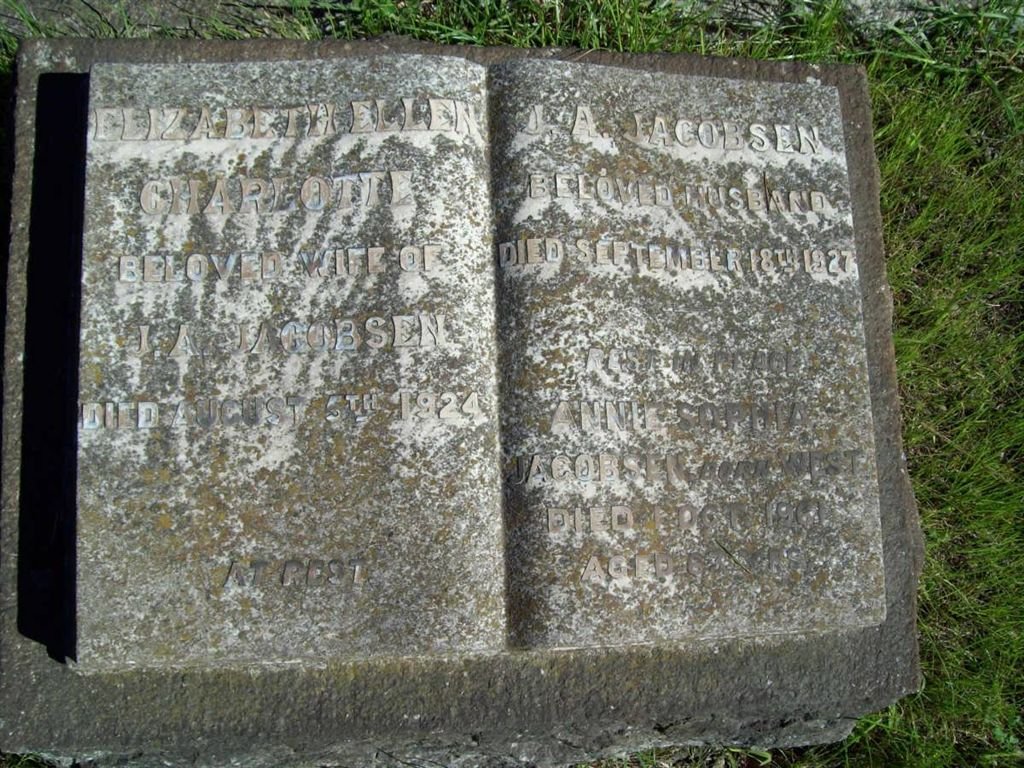 ELIZABETH ELLEN
CHARLOTTE
BELOVED WIFE OF
J. A. JACOBSEN
DIED AUGUST 5TH 1924
AT REST
J. A. JACOBSEN
BELOVED HUSBAND
DIED SEPTEMBER 18TH 1927
REST IN PEACE
ANNIE SOPHIA
JACOBSEN WEST
DIED 1 OCT
AGED